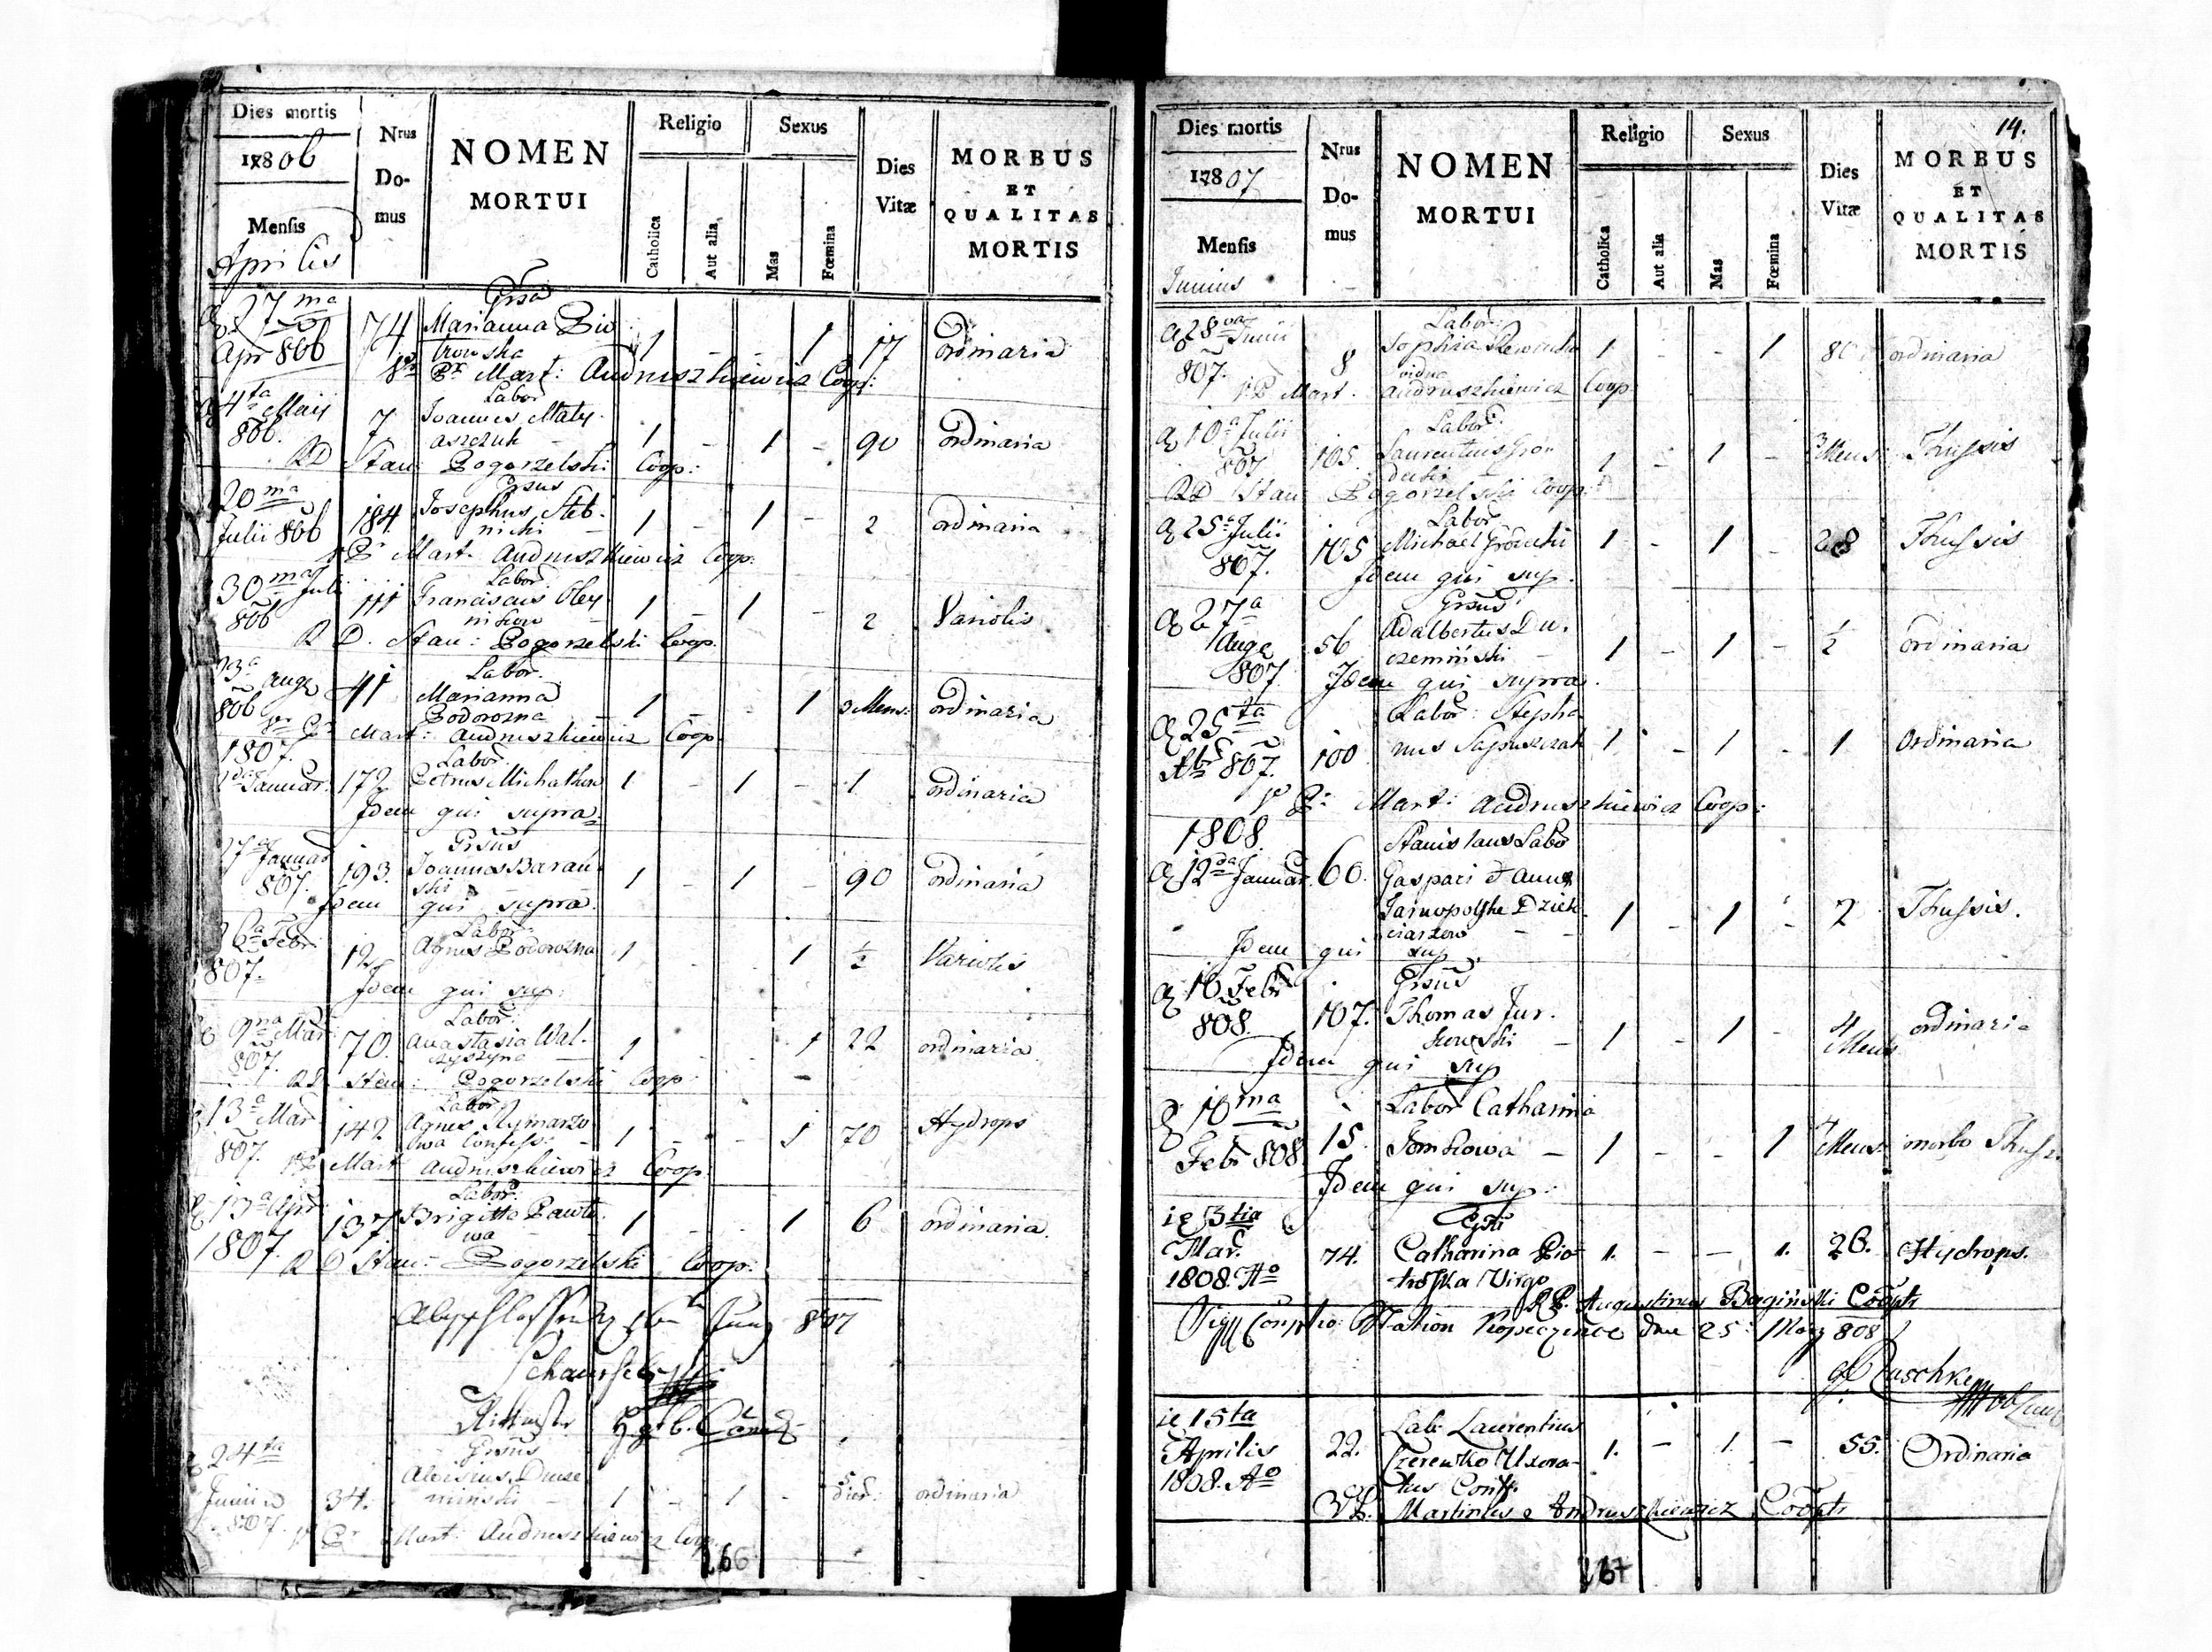 Dies mortis
1806
Mensis
Aprilis
Nrus Domus
NOMEN MORTUI
Religio
Catholica
Aut alia
Sexus
Mas
Fœmina
Dies Vitæ
MORBUS ET QUALITAS MORTIS
27ma Apr 806 74 Grsa Marianna Pio- 1 - - 1 17 ordinaria
trowska
Pr Mart: Andruszkiewicz Coop:
4ta Maij 806. 7 Labor Joannes Maty- 1 - 1 - 90 ordinaria
aszczuk
RD Stan: Pogorzelski Coop:
20ma Julii 806 184 Grsus Josephus Steb- 1 - 1 - 2 ordinaria
nicki
Pr Mart. Andruszkiewicz Coop:
30ma Julii 806 111 Labor. Franciscus Oley- 1 - 1 - 2 Variolis
nikow
R D. Stan: Pogorzelski Coop.
23a Aug 806 41 Labor. Marianna 1 - - 1 3 Mens: ordinaria
Podorozna
Pr Mart: Andruszkiewicz Coop
1807.
Januar. 172 Labor. Petrus Michatkow 1 - 1 - 1 ordinaria
Idem qui supra.
27 Januar 807. 193. Grsus Joannes Barań- 1 - 1 - 90 ordinaria
ski
Idem qui supra.
Febr. 807. 12 Labor: Agnes Podorozna 1 - - 1 1/2 Variolis
Idem qui sup:
9na Mar 807. 70. Labor: Anastasia Wal- 1 - - 1 22 ordinaria.
czyszyna
RD Stan: Pogorzelski Coop:
13a Mar 807. 142 Labor. Agnes Rymarzo- 1 - - 1 70 Hydrops
wa Confess:
Mart Andruszkiewicz Coop.
13a Apr 1807. 137 Labor: Brigitta Pawlo- 1 - - 1 6 ordinaria.
wa
R D Stan: Pogorzelski Coop:
807
Rittmeister
24ta Junii 807. 34. Grsus Aloisius Ducze- 1 - 1 - 5 dier: ordinaria
miński
Pr Mart: Andruszkiewicz Coop.
266
14.
Dies mortis
1807
Mensis
Junius
Nrus Domus
NOMEN MORTUI
Religio
Catholica
Aut alia
Sexus
Mas
Fœmina
Dies Vitæ
MORBUS ET QUALITAS MORTIS
28va Junii 807. 8 Labor: Sophia 1 - - 1 80 ordinaria
vidua
Mart. Andruszkiewicz Coop
10a Julii 807 105. Labor: Laurentius Gron- 1 - 1 - 3 Mens: Thussis
decki
RD Stan: Pogorzelski Coop:
25a Julii 807. 105 Labor. Michael Grodecki 1 - 1 - 28 Thussis
Idem qui sup.
27a Aug 807 56 Grsus Adalbertus Du- 1 - 1 - 1/2 ordinaria
czemiński
Idem qui supra.
25ta 807. 100 Labor: Stepha- 1 - 1 - 1 Ordinaria
nus Sapuszczak
Pr Mart: Andruszkiewicz Coop:
1808.
12da Januar. 60. Stanislaus Labo
Gaspari et Annæ
Jarnopolske Dzieh- 1 - 1 - 2 Thussis.
ciarzow
Idem qui sup.
16 Febr 808. 107. Grsus Thomas Jur- 1 - 1 - 4 Mens ordinaria
kowski
Idem qui sup
18ma Febr 808 15. Labor Catharina
Tomkowa 1 - - 1 7 Mens: morbo Thuss.
Idem qui sup:
ie 3tia Mar. 1808. Ao 74. Catharina Pio- 1. - - 1. 26. Hydrops.
trosska Virgo
RP. Augustinus Bagiński Cooptr
Station Kopeczince den 25: März 808
Paschke
ie 15ta Aprilis 1808. Ao 22. Lab: Laurentius
Czerewko Uxora- 1. - 1. - 55. Ordinaria
tus Conff.
Martinus Andruszkiewicz Cooptr
267